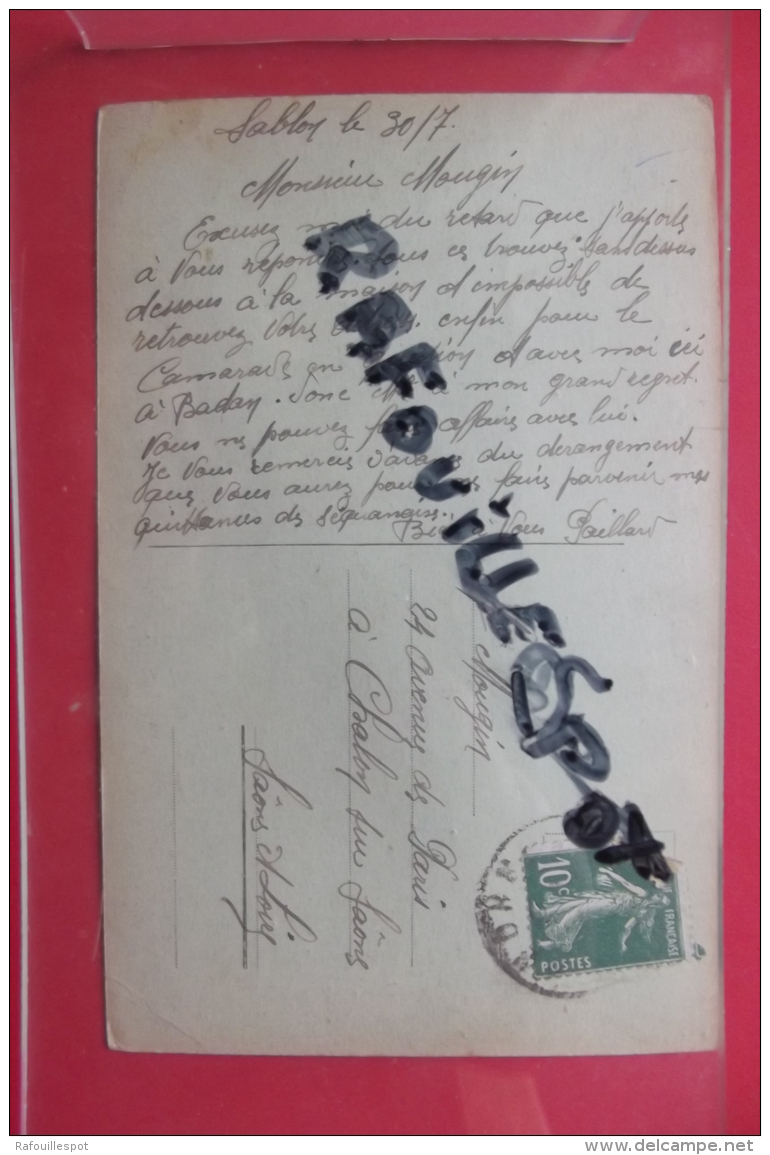 Sablon le 30/7.
Monsieur Mougin
Excusez du retard que j'apporte
à Vous vous ces trouvez sans dessus
dessous à la maison d'impossible de
retrouvez Votre enfin pour le
Camarade en d'avec moi ici
à Badan. donc à mon grand regret.
Vous ne pouvez affaire avec lui.
Je Vous remercie d'avance du derangement
que Vous aurez pour faire parvenir mes
quittances de séquanaise.
Bien à Vous Paillard
Mougin
24 avenue de Paris
à Chalon sur Saône
Saône et Loire
RAFOUILLESPOT
10c
POSTES
FRANCAISE
Rafouillespot
www.delcampe.net